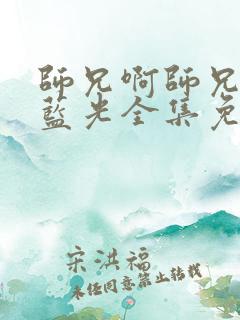 師兄啊師兄
藍光全集免
宋洪福
未经同意禁止转载